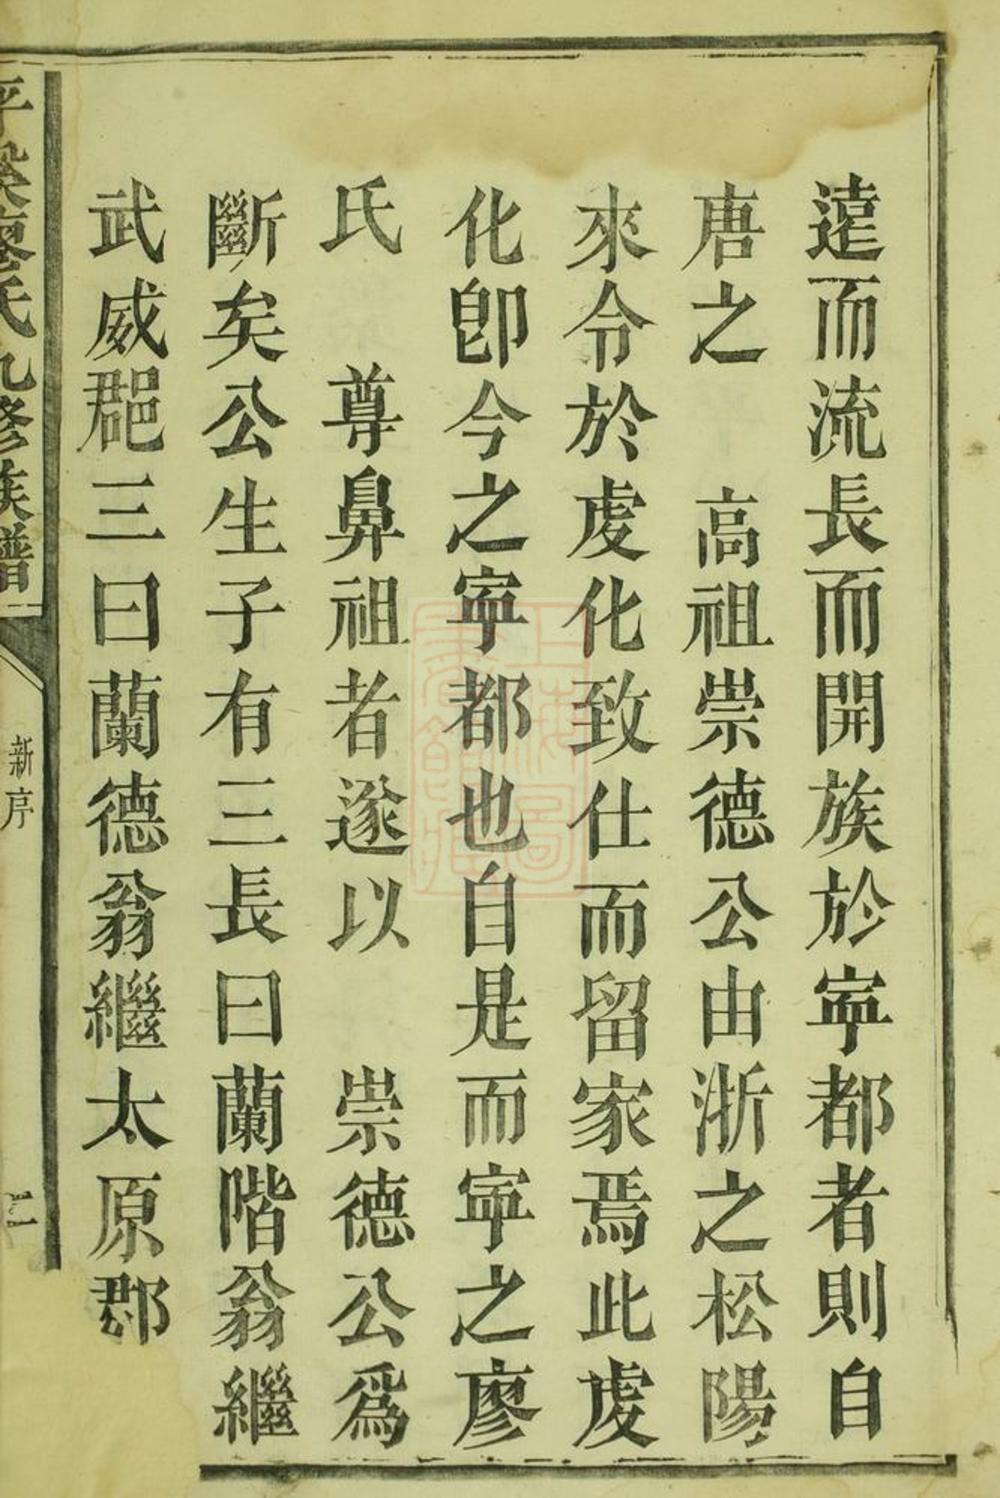 遠而流長而開族於寕都者則自
唐之 高祖崇德公由浙之松陽
來令於虔化致仕而留家焉此虔
化卽今之寕都也自是而寕之廖
氏 尊鼻祖者遂以 崇德公爲
斷矣公生子有三長曰蘭階翁繼
武威郡三曰蘭德翁繼太原郡
廖氏九修族譜
新序
二